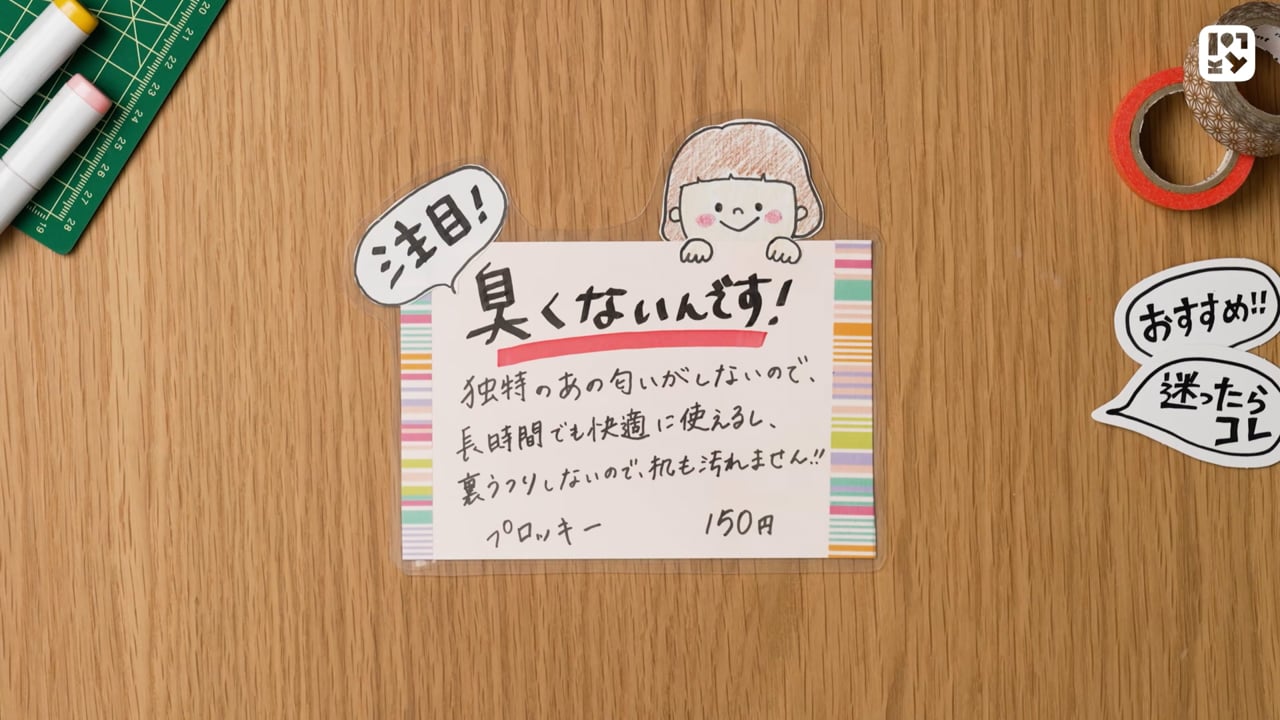 注目!
臭くないんです!
独特のあの匂いがしないので、
長時間でも快適に使えるし、
裏うつりしないので、机も汚れません!!
プロッキー 150円
おすすめ!!
迷ったら
コレ
20
21
22
23
24
25
26
27
28
19